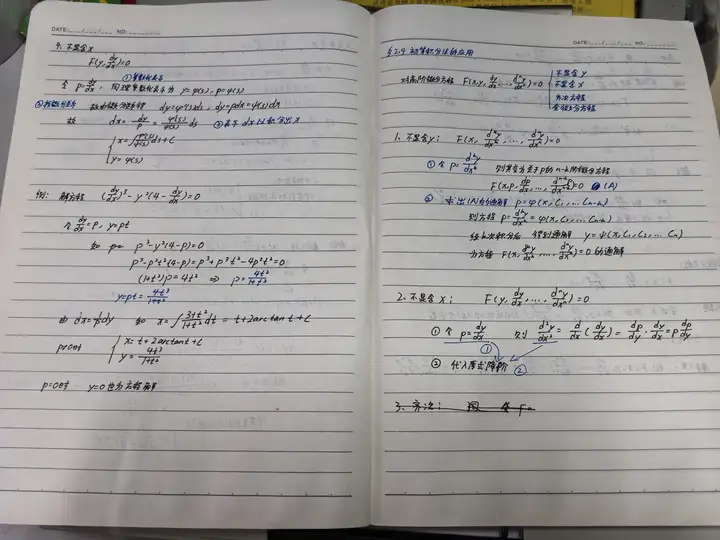 DATE: NO:
4. 不显含 x
F(y, dy/dx)=0
① 参数化表示
令 p=dy/dx, 同理参数化表示为 y=φ(s), p=ψ(s)
故由微分关系得 dy=φ'(s)ds, dy=pdx=ψ(s)dx
故 dx=dy/p=φ'(s)/ψ(s) ds ③表示 dx 以积分出 x
{ x=∫φ'(s)/ψ(s) ds+C
y=φ(s)
例: 解方程 (dy/dx)³-y²(4-dy/dx)=0
令 dy/dx=P, y=pt
如 p³-y²(4-p)=0
p³-p²t²(4-p)=p³+p³t²-4p²t²=0
(1+t²)p=4t² ⇒ p=4t²/(1+t²)
y=pt=4t³/(1+t²)
由 dx=1/p dy 如 x=∫(3+t²)/(1+t²) dt = t+2arctant+C
p≠0时 { x=t+2arctant+C
y=4t³/(1+t²)
p=0时 y=0也为方程解
DATE: NO:
§2.4 初等积分法的应用
对高阶微分方程 F(x,y,dy/dx,...,dⁿy/dxⁿ)=0
不显含 y
不显含 x
齐次方程
全微分方程
1. 不显含y: F(x, dᵏy/dxᵏ,...,dⁿy/dxⁿ)=0
① 令 P=dᵏy/dxᵏ 则其变为关于p的n-k阶微分方程
F(x,p,dp/dx,...,dⁿ⁻ᵏp/dxⁿ⁻ᵏ)=0 (A)
② 求出(A)的通解 p=φ(x,C₁,...Cn-k)
则方程 p=dᵏy/dxᵏ=φ(x,C₁...Cn-k)
经k次积分后 得到通解 y=ψ(x,C₁,C₂,...Cn)
为方程 F(x,dᵏy/dxᵏ,...,dⁿy/dxⁿ)=0的通解
2. 不显含x: F(y,dy/dx,...,dⁿy/dxⁿ)=0
① 令 p=dy/dx 则 d²y/dx²=d/dx(dy/dx)=dp/dy·dy/dx=p dp/dy
①
② 代入原式降阶 ②
3. 齐次: